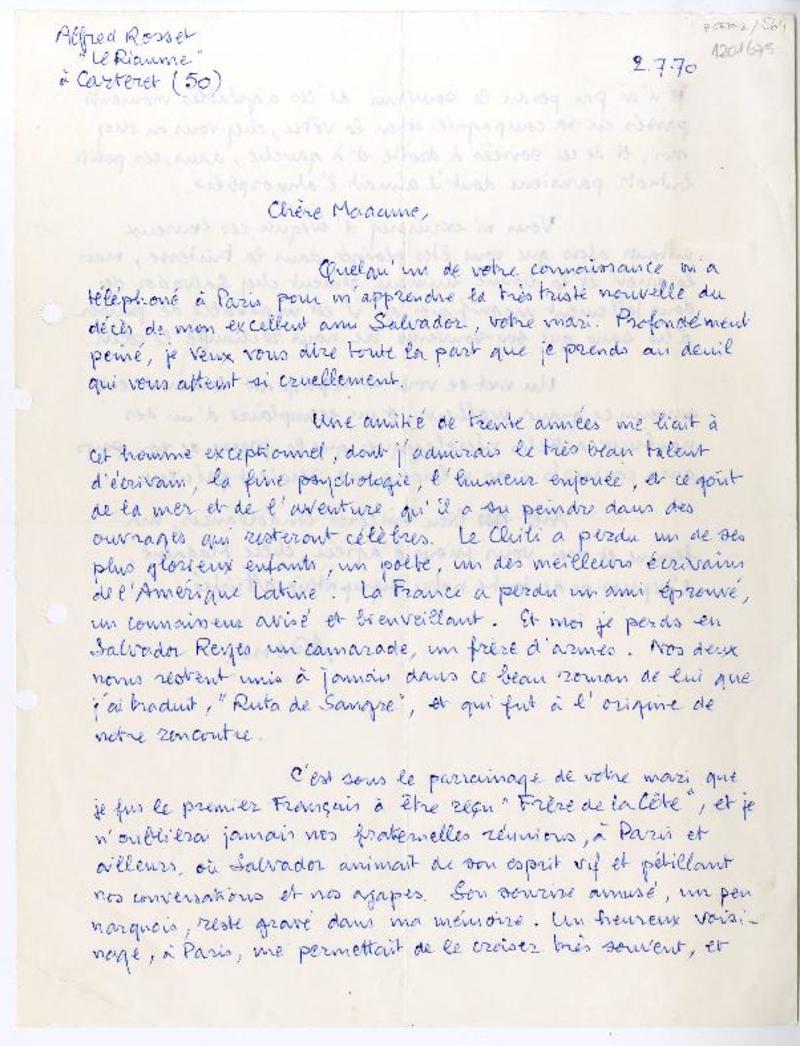 Alfred Rosset
"Le Riaume"
à Carteret (50)
1201675
2.7.70
Chère Madame,
Quelqu'un de votre connaissance m'a
téléphoné à Paris pour m'apprendre la très triste nouvelle du
décès de mon excellent ami Salvador, votre mari. Profondément
peiné, je veux vous dire toute la part que je prends au deuil
qui vous atteint si cruellement.
Une amitié de trente années me liait à
cet homme exceptionnel, dont j'admirais le très beau talent
d'écrivain, la fine psychologie, l'humeur enjouée, et ce goût
de la mer et de l'aventure qu'il a su peindre dans des
ouvrages qui resteront célèbres. Le Chili a perdu un de ses
plus glorieux enfants, un poète, un des meilleurs écrivains
de l'Amérique Latine. La France a perdu un ami éprouvé,
un connaisseur avisé et bienveillant. Et moi je perds en
Salvador Reyes un camarade, un frère d'armes. Nos deux
noms restent unis à jamais dans ce beau roman de lui que
j'ai traduit, "Ruta de Sangre", et qui fut à l'origine de
notre rencontre.
C'est sous le parrainage de votre mari que
je fus le premier Français à être reçu "Frère de la Côte", et je
n'oublierai jamais nos fraternelles réunions, à Paris et
ailleurs, où Salvador animait de son esprit vif et pétillant
nos conversations et nos agapes. Son sourire amusé, un peu
narquois, reste gravé dans ma mémoire. Un heureux voisi-
nage, à Paris, me permettait de le croiser très souvent, et